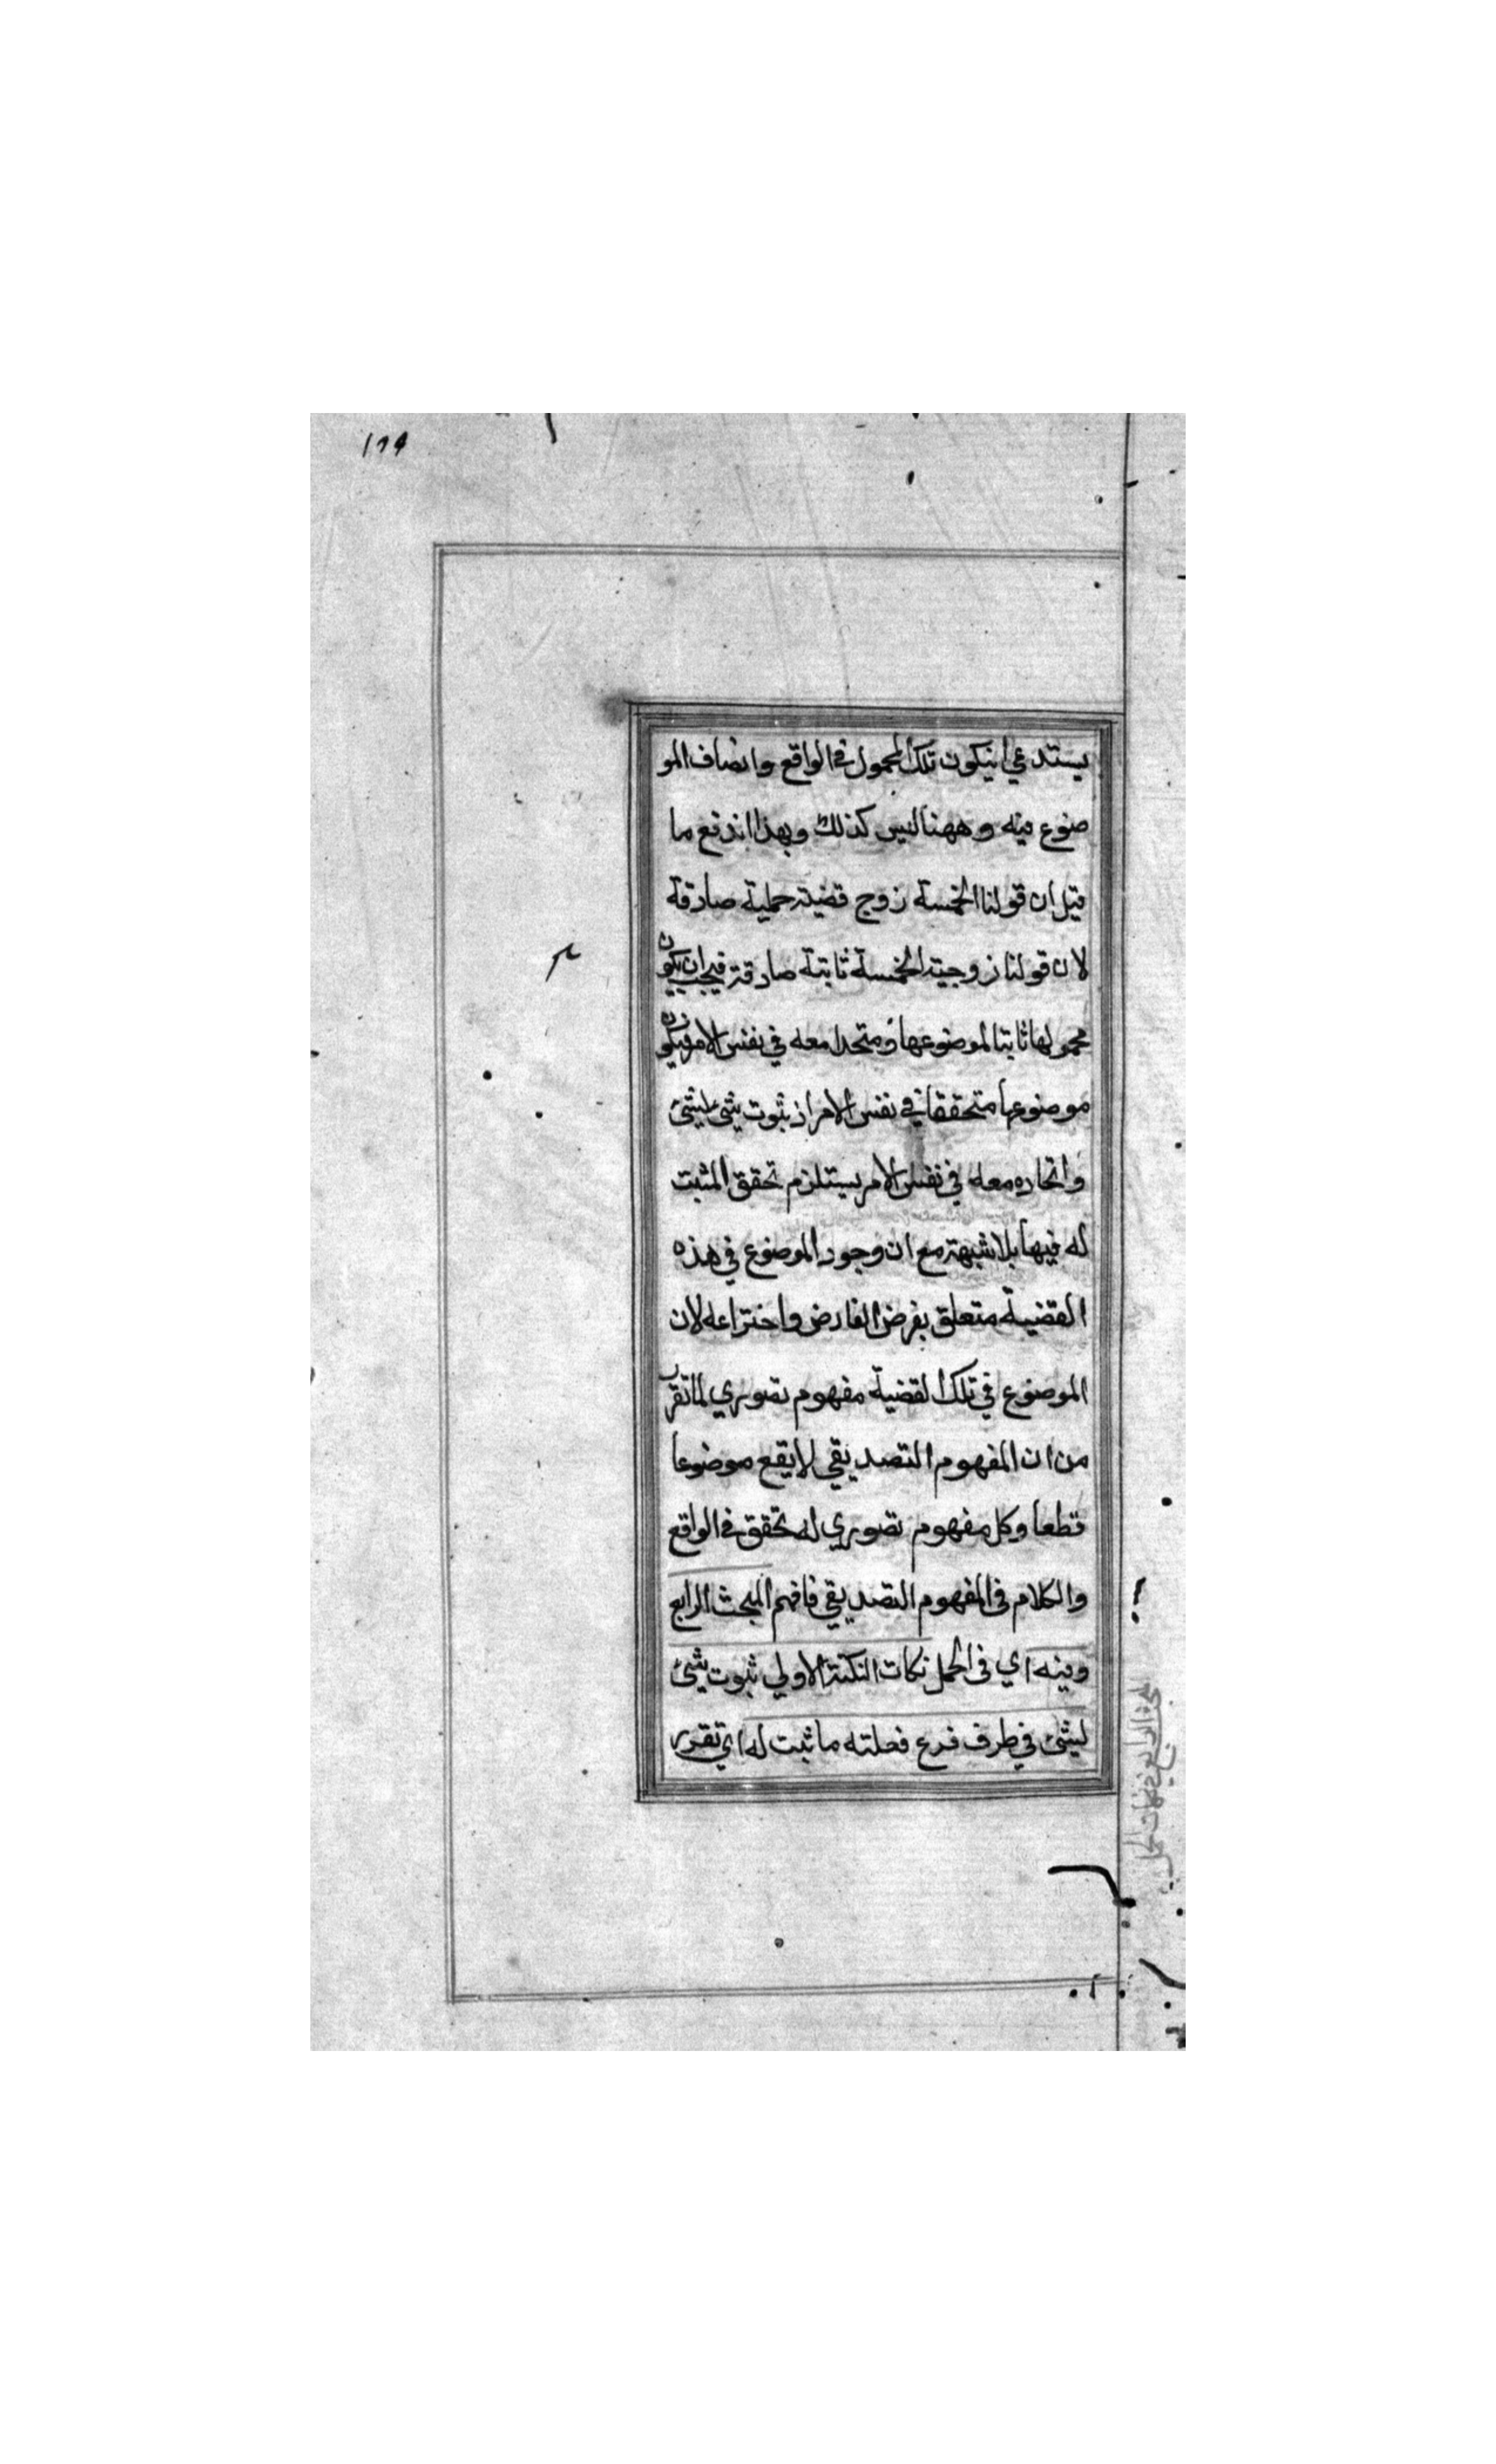 ١٢٩
يستدعي ان يكون تلك المحمول في الواقع واتصاف المو
ضوع فيه وههنا ليس كذلك وبهذا اندفع ما
قيل ان قولنا الخمسة زوج قضية حملية صادقة
لان قولنا زوجية الخمسة ثابتة صادقة فيجب ان يكون
محمولها ثابتا لموضوعها ومتحدا معه في نفس الامر فيكون
موضوعها متحققا في نفس الامر اذ ثبوت شئ لشئ
واتحاده معه في نفس الامر يستلزم تحقق المثبت
له فيها بلا شبهة مع ان وجود الموضوع في هذه
القضية متعلق بفرض الفارض واختراعه لان
الموضوع في تلك القضية مفهوم تصوري لما تقرر
من ان المفهوم التصديقي لا يقع موضوعا
قطعا وكل مفهوم تصوري له تحقق في الواقع
والكلام في المفهوم التصديقي فافهم المبحث الرابع
وفيه اي في الحمل نكات النكتة الاولي ثبوت شئ
لشئ في ظرف فرع فعليته ما ثبت له اي تقرر